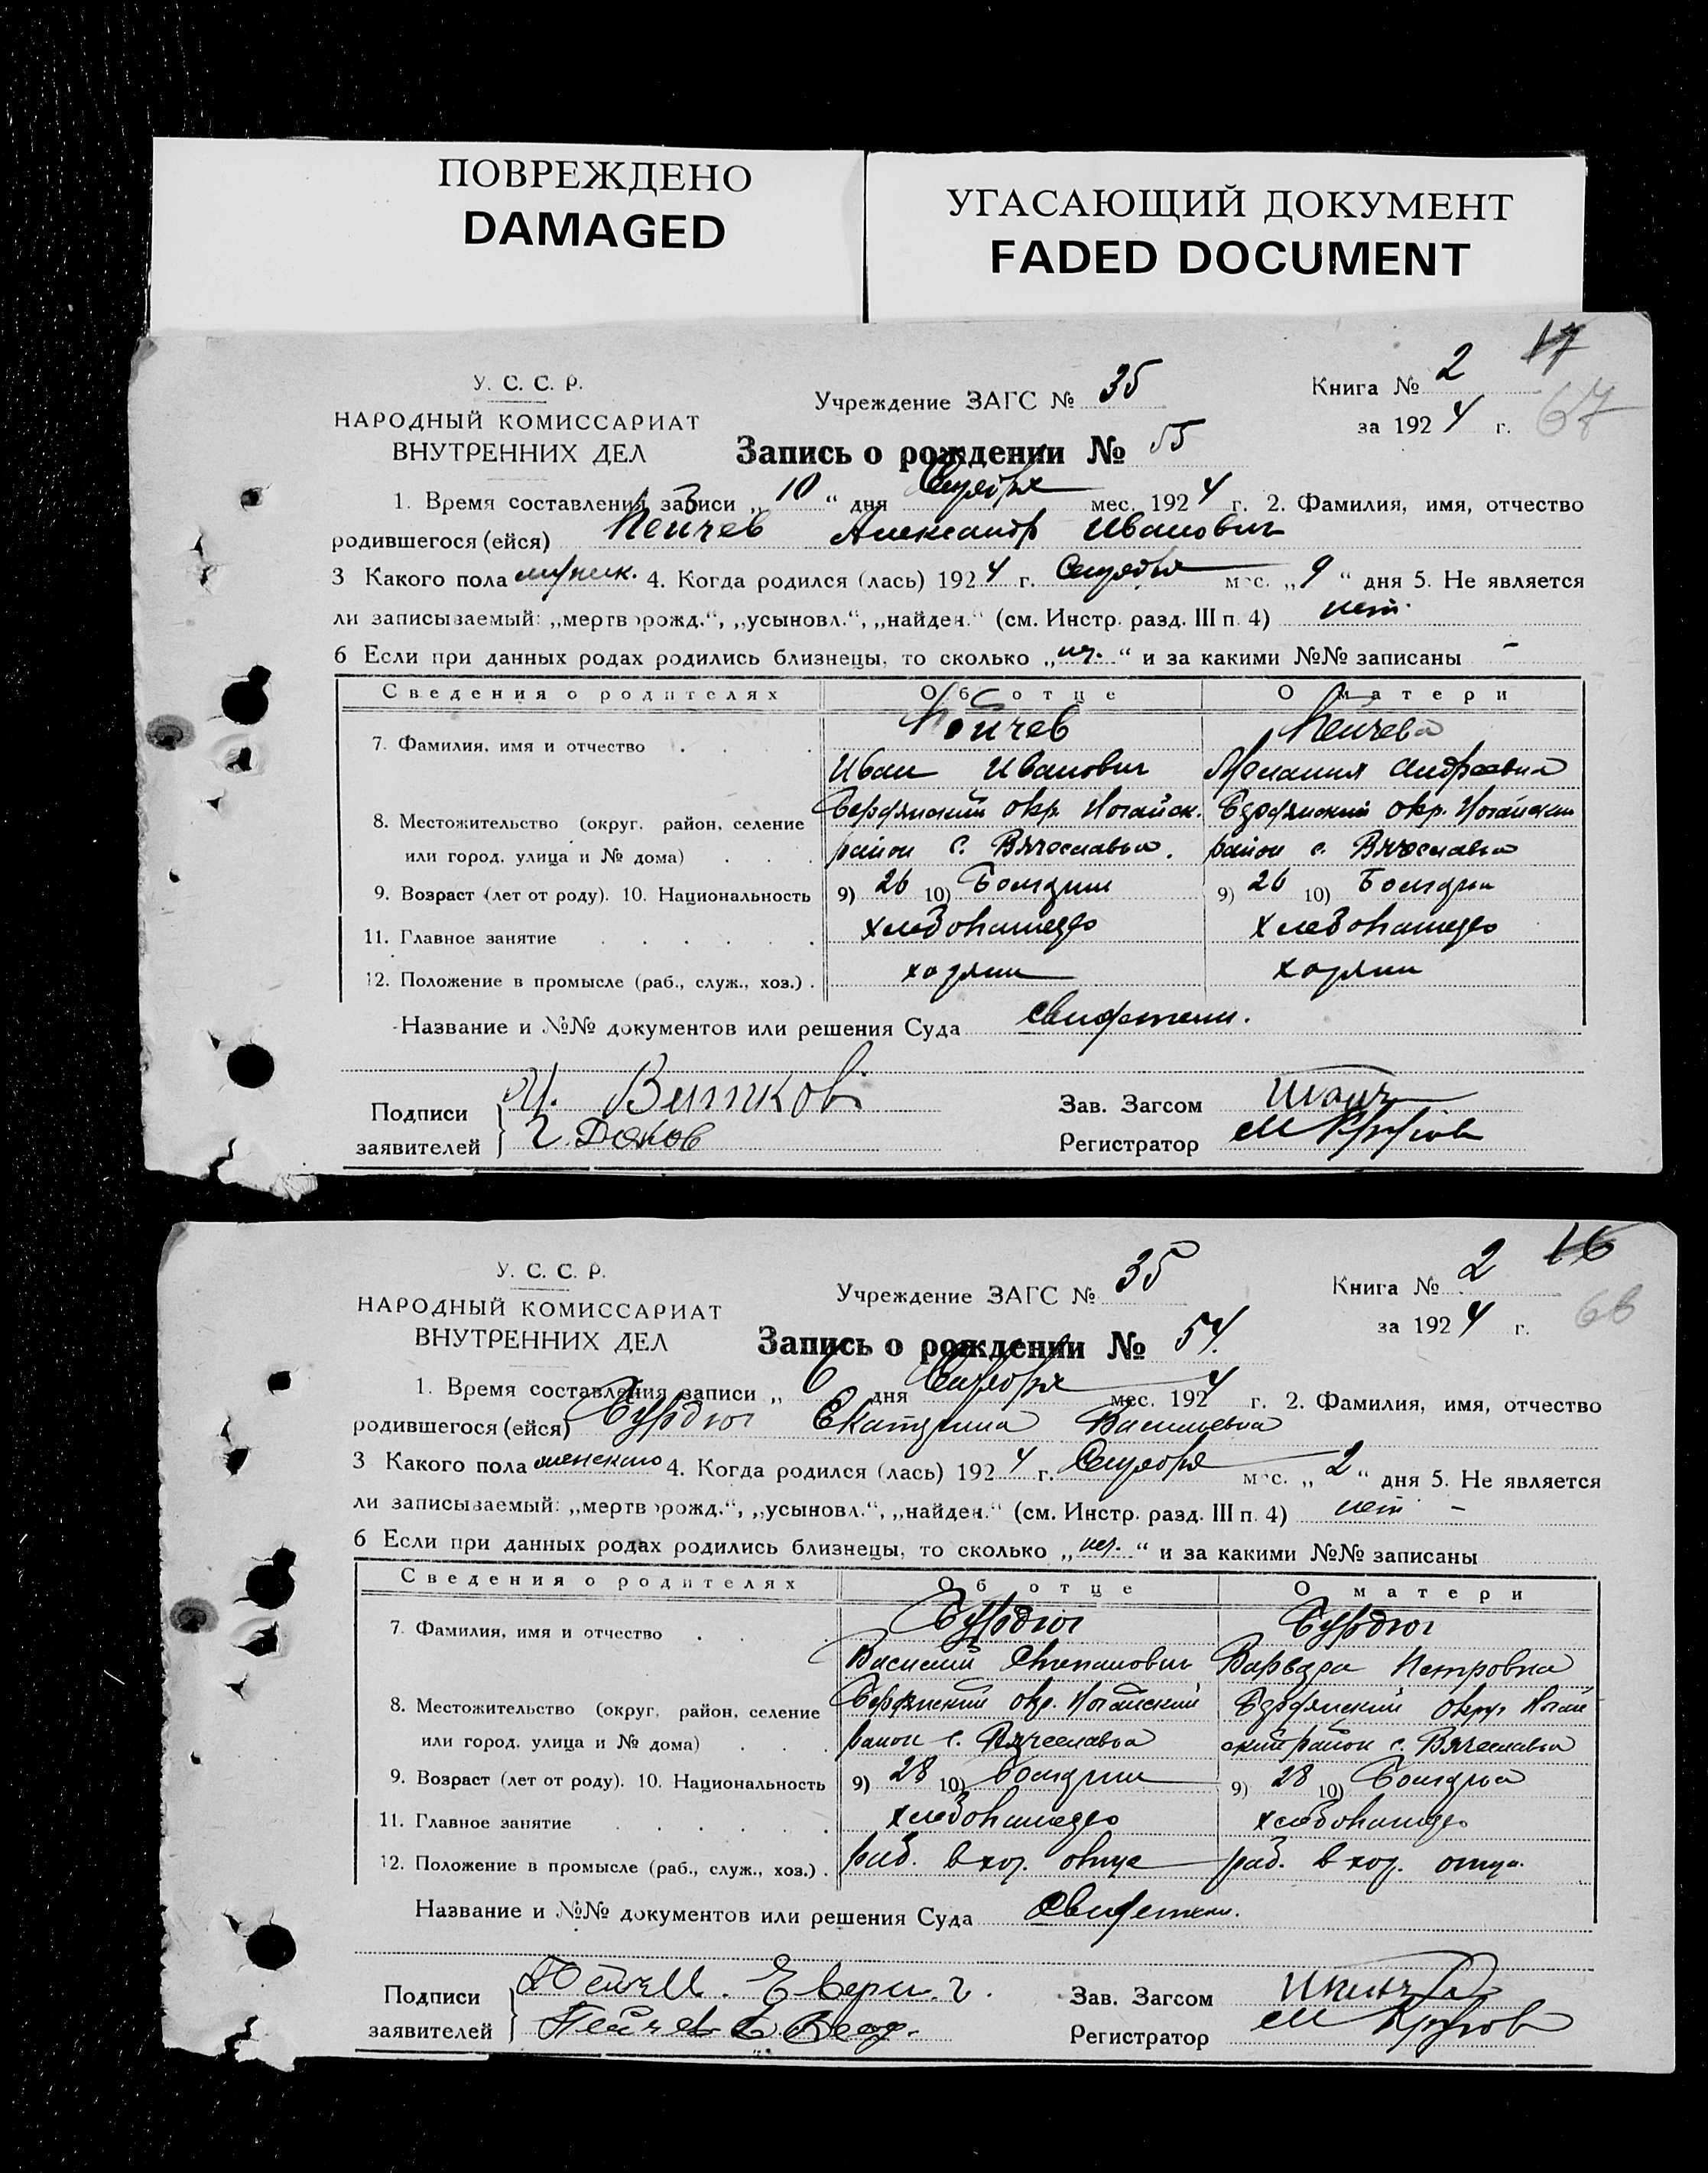 ПОВРЕЖДЕНО
DAMAGED
УГАСАЮЩИЙ ДОКУМЕНТ
FADED DOCUMENT
17
67
У. С. С. Р.
НАРОДНЫЙ КОМИССАРИАТ
ВНУТРЕННИХ ДЕЛ
Учреждение ЗАГС № 35
Книга № 2
за 1924 г.
Запись о рождении № 55
1. Время составления записи „10“ дня Сентября мес. 1924 г. 2. Фамилия, имя, отчество
родившегося (ейся) Пейчев Александр Иванович
3 Какого пола мужск. 4. Когда родился (лась) 1924 г. Сентября мес. „9“ дня 5. Не является
ли записываемый: „мертворожд.“, „усыновл.“, „найден.“ (см. Инстр. разд. III п. 4) нет.
6 Если при данных родах родились близнецы, то сколько „нет.“ и за какими №№ записаны -
Сведения о родителях Об отце О матери
7. Фамилия, имя и отчество Пейчев Пейчева
Иван Иванович Мелания Андреевна
8. Местожительство (округ, район, селение Бердянский окр. Ногайск. Бердянский окр. Ногайский
или город, улица и № дома) район с. Вячеславка. район с. Вячеславка
9. Возраст (лет от роду). 10. Национальность 9) 26 10) Болгарин 9) 26 10) Болгарка
11. Главное занятие хлебопашество хлебопашество
12. Положение в промысле (раб., служ., хоз.) хозяин хозяин
Название и №№ документов или решения Суда свидетели.
Подписи
заявителей
И. Витков
Г. Доков
Зав. Загсом
Регистратор
16
У. С. С. Р.
НАРОДНЫЙ КОМИССАРИАТ
ВНУТРЕННИХ ДЕЛ
Учреждение ЗАГС № 35
Книга № 2
за 1924 г.
Запись о рождении № 54.
1. Время составления записи „6 дня Сентября мес. 1924 г. 2. Фамилия, имя, отчество
родившегося (ейся) Бурдюг Екатерина Васильевна
3 Какого пола женского 4. Когда родился (лась) 1924 г. Сентября мес. „2“ дня 5. Не является
ли записываемый: „мертворожд.“, „усыновл.“, „найден.“ (см. Инстр. разд. III п. 4) нет -
6 Если при данных родах родились близнецы, то сколько „нет.“ и за какими №№ записаны
Сведения о родителях Об отце О матери
7. Фамилия, имя и отчество Бурдюг Бурдюг
Василий Степанович Варвара Петровна
8. Местожительство (округ, район, селение Бердянский окр. Ногайский Бердянский округ Ногай
или город, улица и № дома) район с. Вячеславка ский район с. Вячеславка
9. Возраст (лет от роду). 10. Национальность 9) 28 10) Болгарин 9) 28 10) Болгарка
11. Главное занятие хлебопашество хлебопашество
12. Положение в промысле (раб., служ., хоз.) раб. в хоз. отца раб. в хоз. отца.
Название и №№ документов или решения Суда свидетели.
Подписи
заявителей
Пейчев
Зав. Загсом
Регистратор